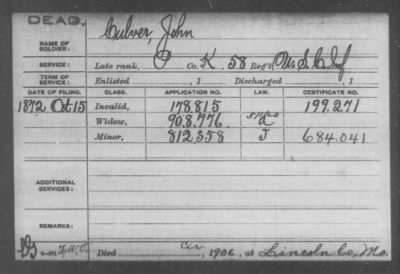 DEAD.
NAME OF SOLDIER: Culver, John
SERVICE: Late rank, P Co. K, 58 Reg't U.S.C. Inf
TERM OF SERVICE: Enlisted , 1 Discharged , 1
DATE OF FILING. CLASS. APPLICATION NO. LAW. CERTIFICATE NO.
1872 Oct 15 Invalid, 178.815 199.271
Widow, 908.776
Minor, 812358 J 684.041
ADDITIONAL SERVICES:
REMARKS:
Died , 1906, at Lincoln Co, Mo.